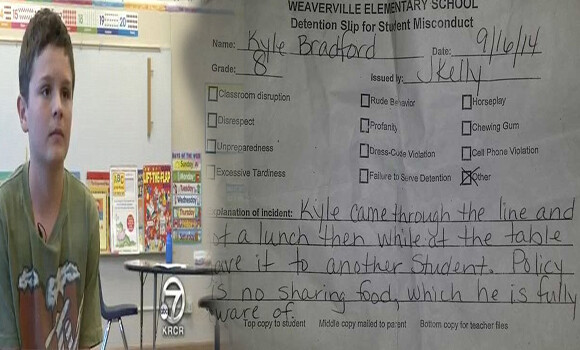 WEAVERVILLE ELEMENTARY SCHOOL
Detention Slip for Student Misconduct
Name: Kyle Bradford Date: 9/16/14
Grade: 8 Issued by: JKelly
Classroom disruption Rude Behavior Horseplay
Disrespect Profanity Chewing Gum
Unpreparedness Dress-Code Violation Cell Phone Violation
Excessive Tardiness Failure to Serve Detention Other
xplanation of incident: Kyle came through the line and
ot a lunch then while at the table
ave it to another student. Policy
is no sharing food, which he is fully
ware of.
Top copy to student Middle copy mailed to parent Bottom copy for teacher files
LIFT-THE-FLAP
Sunday
Monday
Tuesday
Wednesday
Thursday
abc 7
KRCR